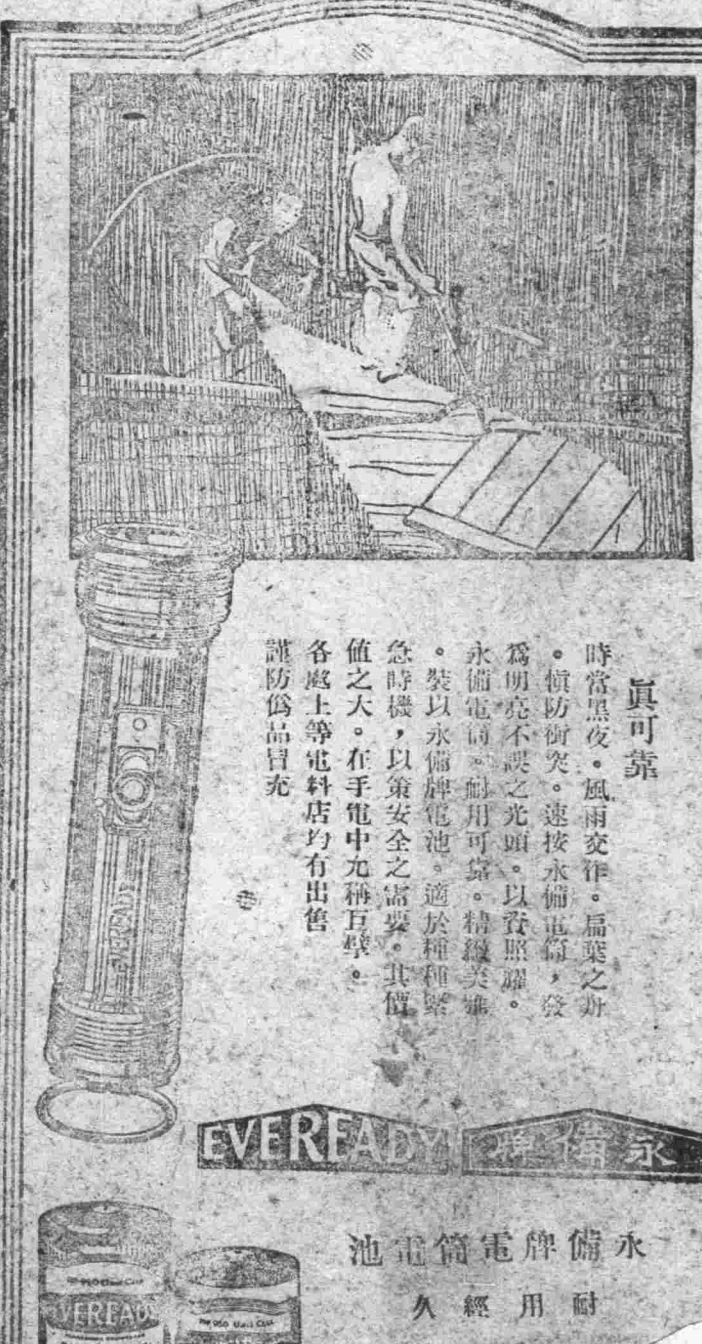 眞可靠
時當黑夜。風雨交作。扁葉之舟
。愼防衝突。速按永備電筒，發
爲明亮不誤之光頭。以資照耀。
永備電筒。耐用可靠。精緻美雅
。裝以永備牌電池。適於種種緊
急時機，以策安全之需要。其價
値之大。在手電中尤稱巨擘。
各處上等電料店均有出售
謹防僞品冒充
EVEREADY
EVEREADY
永備牌
永備牌電筒電池
耐用經久
EVEREADY